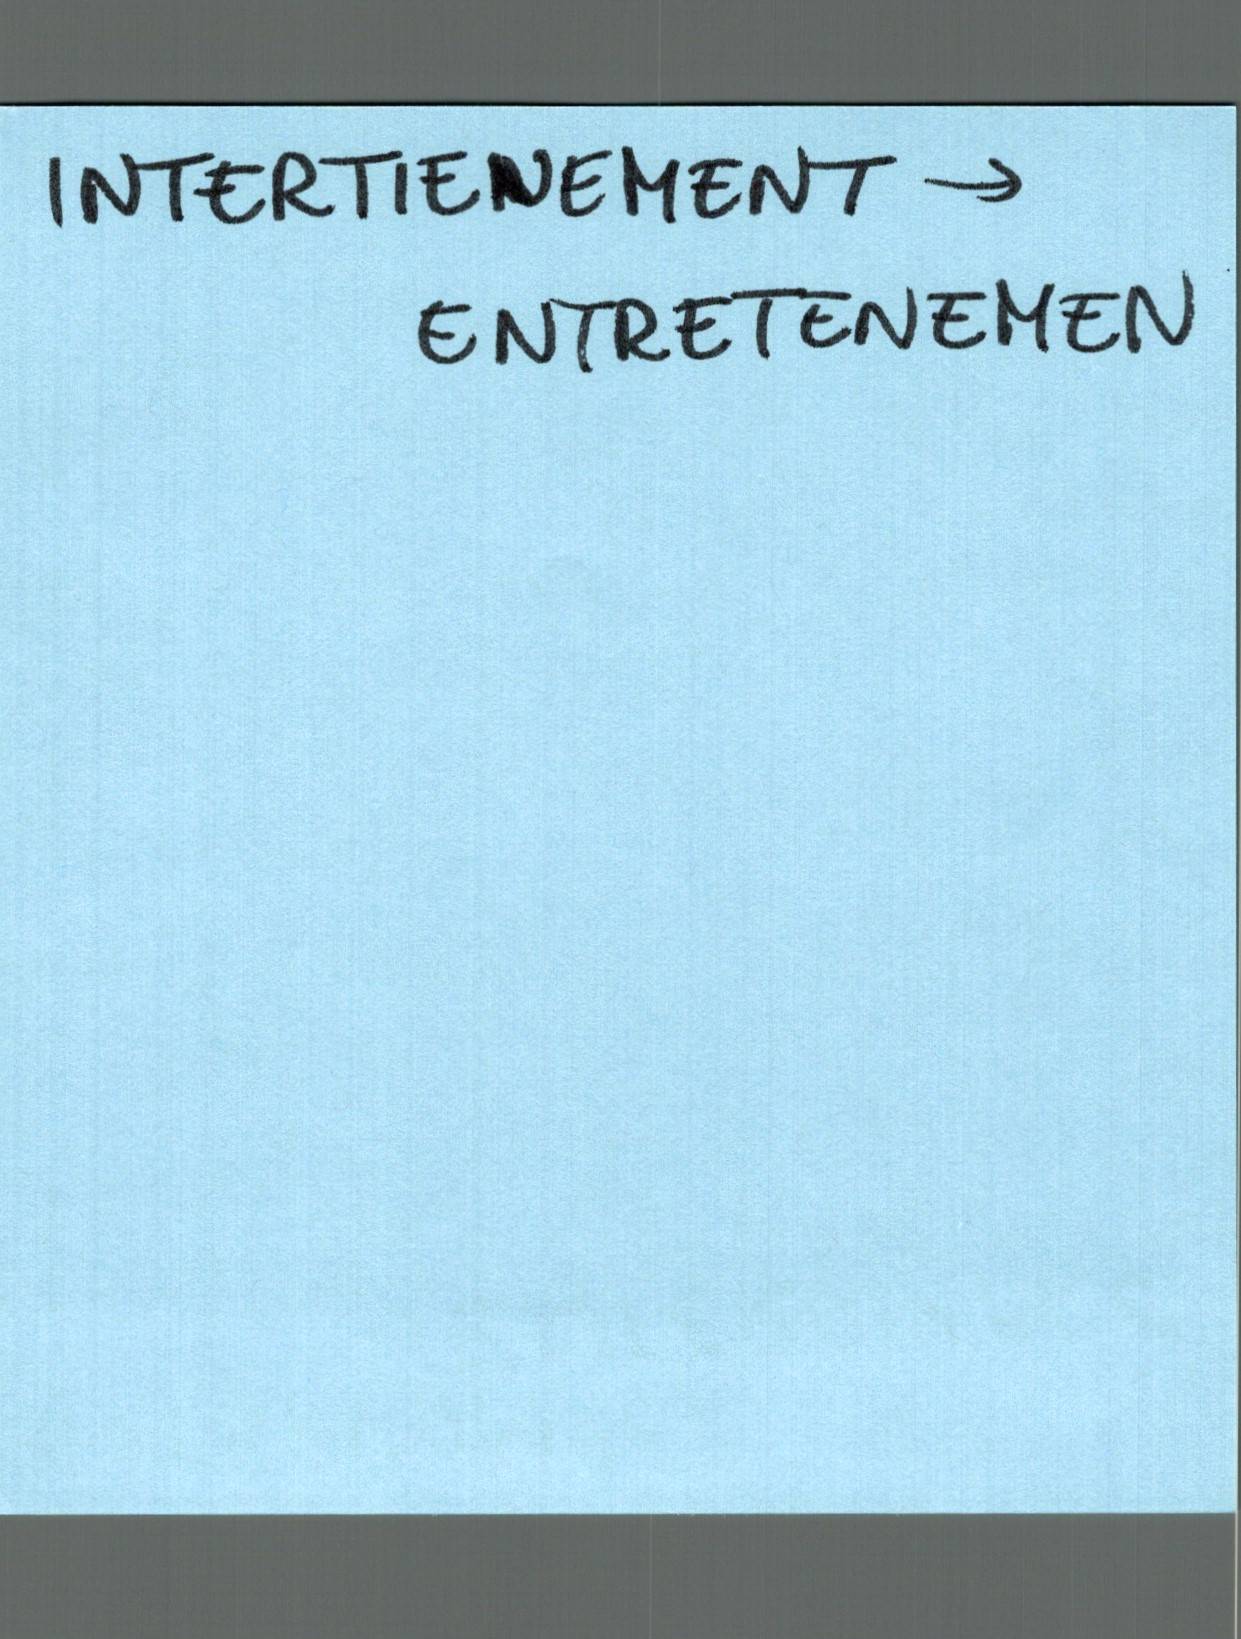 INTERTIENEMENT →
ENTRETENEMEN